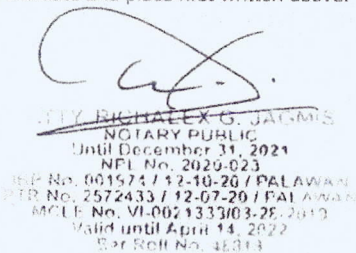 ATTY. RICHALEX G. JAGMIS
NOTARY PUBLIC
Until December 31, 2021
NPL No. 2020-023
IBP No. 001974 / 12-10-20 / PALAWAN
PTR No. 2572433 / 12-07-20 / PALAWAN
MCLE No. VI-0021333/03-28-2019
Valid until April 14, 2022